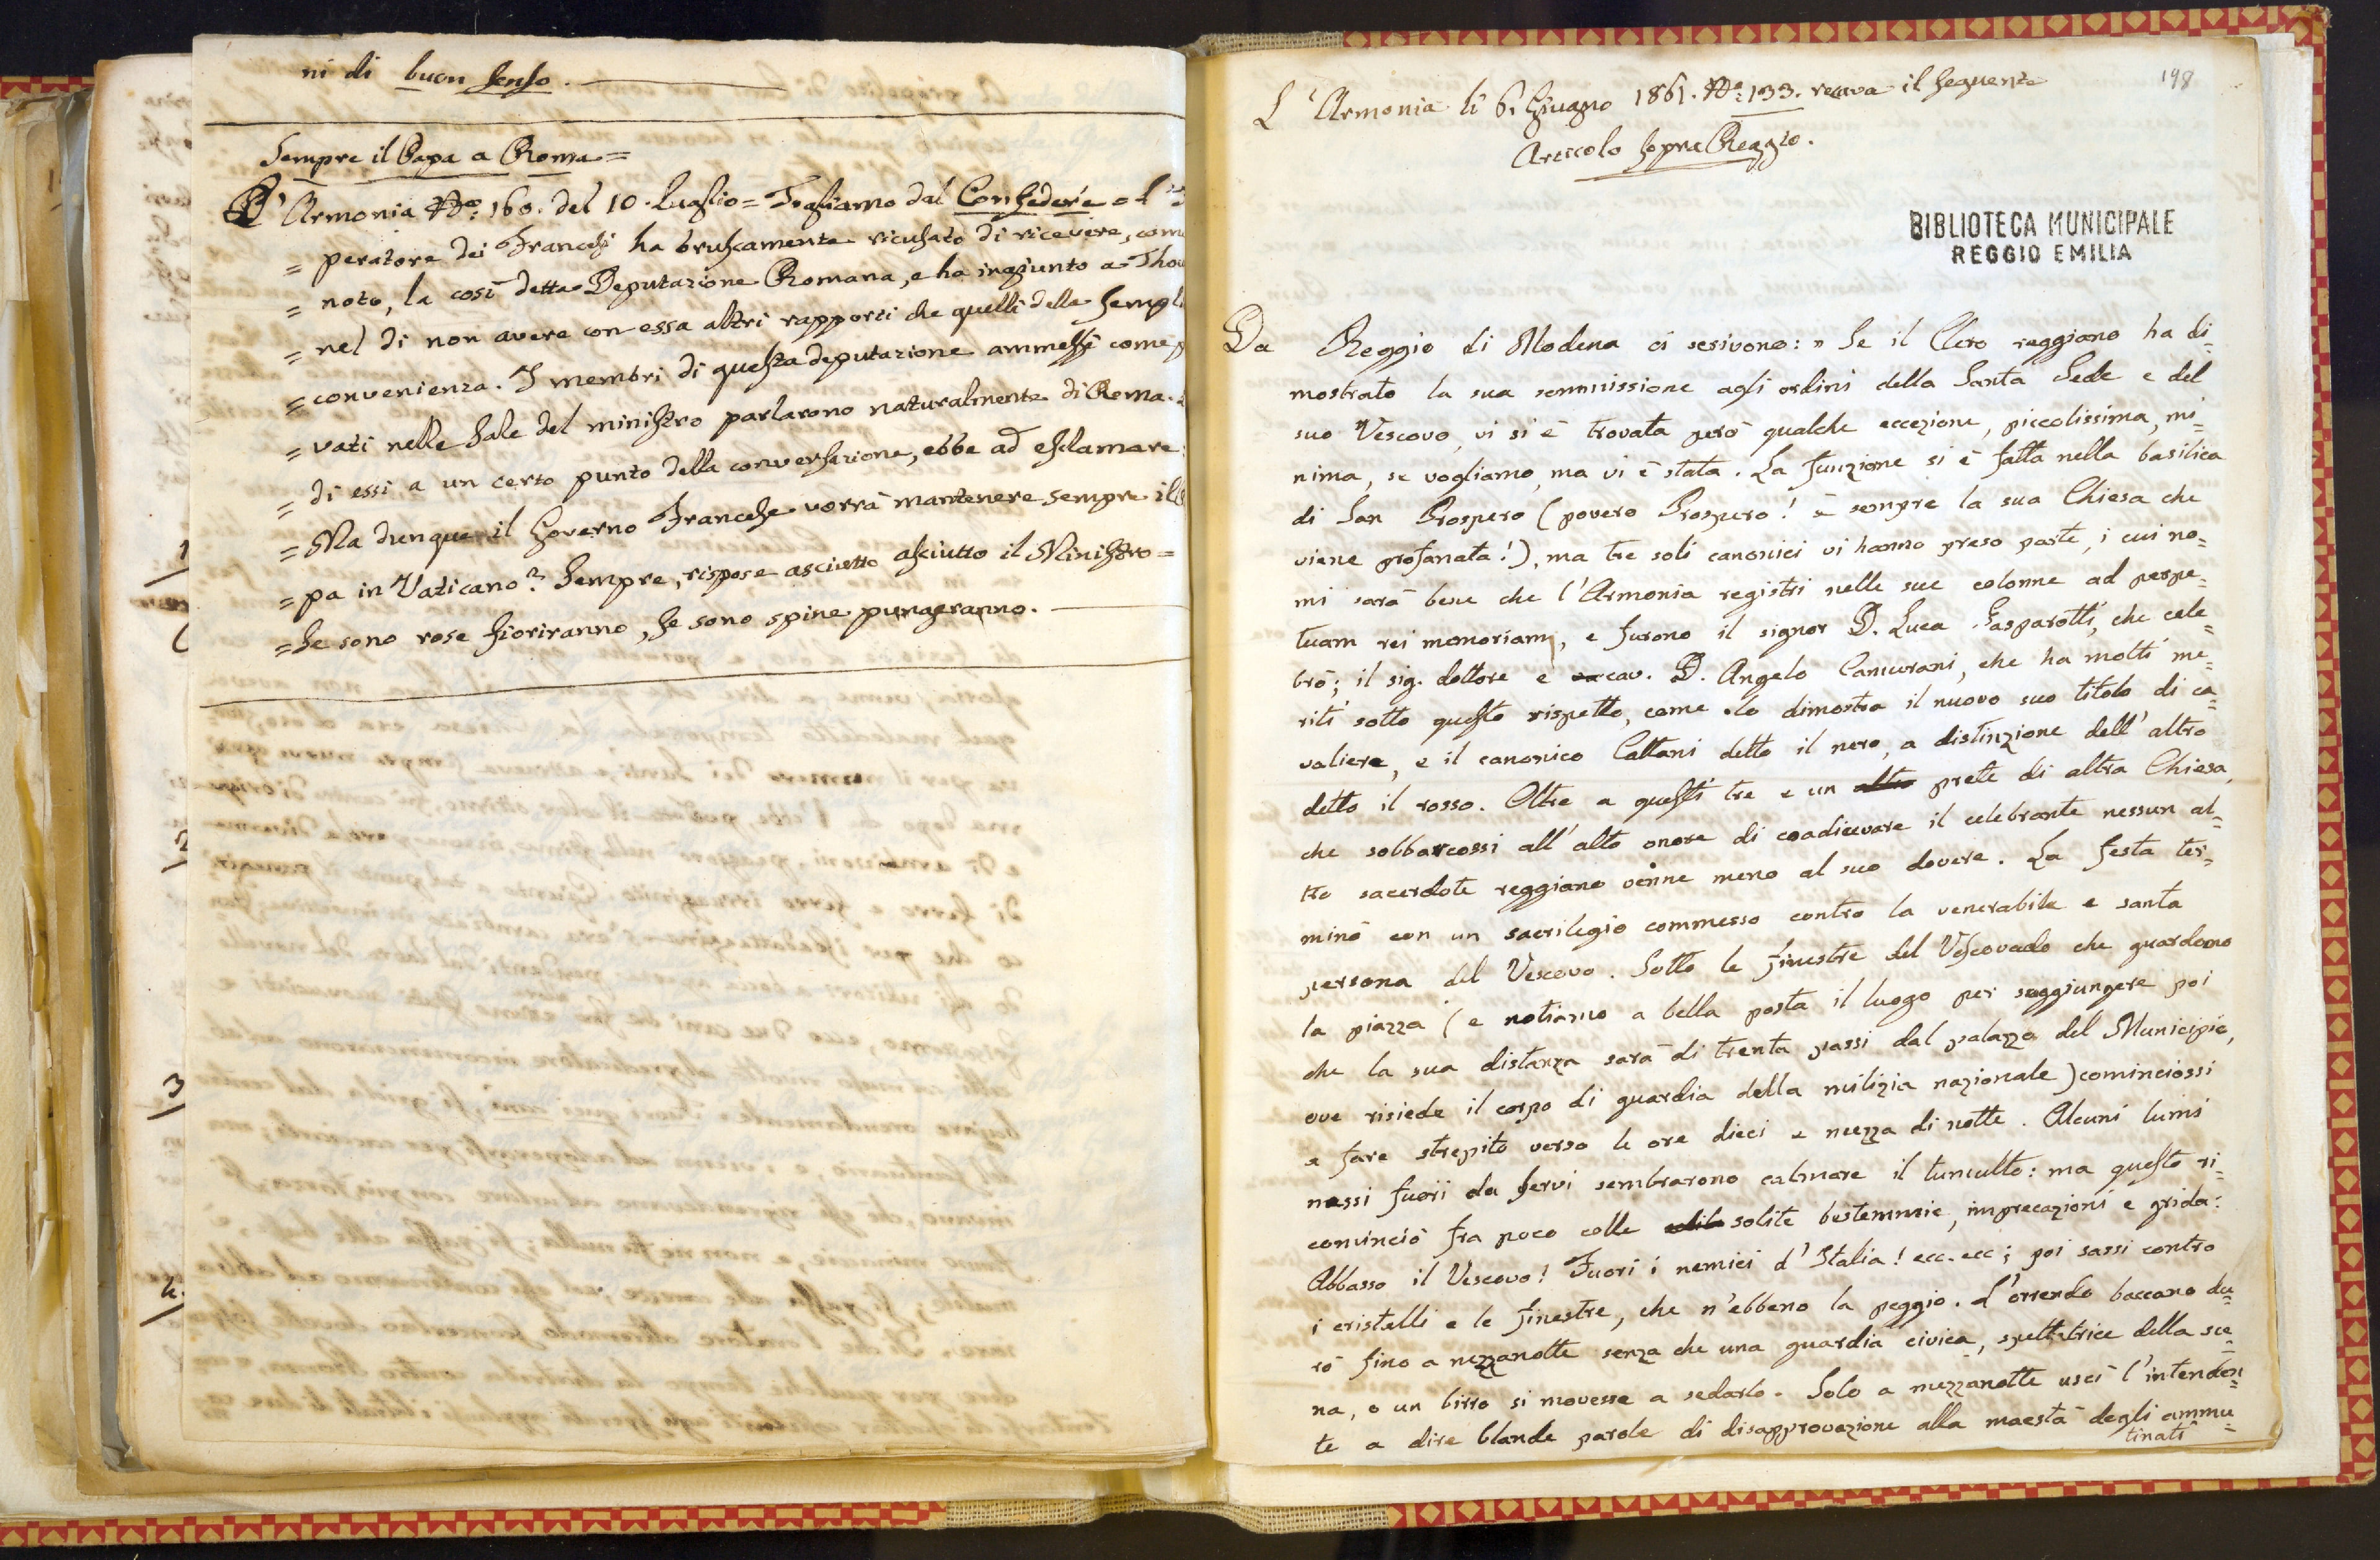 ni di buon senso.
Sempre il Papa a Roma =
L'Armonia No: 160. del 10. Luglio = Togliamo dal Conféderé = L'
= peratore dei Francesi ha bruscamente ricusato di ricevere, com
= noto, la così detta Deputazione Romana, e ha ingiunto a Thou
= nel di non avere con essa altri rapporti che quelli della sempl
= convenienza. I membri di questa deputazione ammessi come p
= vati nelle sale del ministro parlarono naturalmente di Roma.
= di essi a un certo punto della conversazione, ebbe ad esclamare:
= Ma dunque il Governo Francese vorrà mantenere sempre il
= pa in Vaticano? Sempre, rispose asciutto asciutto il Ministro =
= Se sono rose fioriranno, se sono spine pungeranno.
1
2
3
4.
198
L'Armonia li 6. Giugno 1861. No: 133. recava il seguente
Articolo sopra Reggio.
BIBLIOTECA MUNICIPALE
REGGIO EMILIA
Da Reggio di Modena ci scrivono: » Se il Clero reggiano ha di=
mostrato la sua sommissione agli ordini della Santa Sede e del
suo Vescovo, vi si è trovata però qualche eccezione, piccolissima, mi=
nima, se vogliamo, ma vi è stata. La funzione si è fatta nella basilica
di San Prospero (povero Prospero! è sempre la sua Chiesa che
viene profanata!), ma tre soli canonici vi hanno preso parte, i cui no=
mi sarà bene che l'Armonia registri nelle sue colonne ad perpe=
tuam rei memoriam, e furono il signor D. Luca Gasparotti, che cele=
brò; il sig. dottore e cav. D. Angelo Camurani, che ha molti me=
riti sotto questo rispetto, come lo dimostra il nuovo suo titolo di ca=
valiere, e il canonico Cattani detto il nero, a distinzione dell'altro
detto il rosso. Oltre a questi tre e un altro prete di altra Chiesa,
che sobbarcossi all'alto onore di coadiuvare il celebrante nessun al=
tro sacerdote reggiano venne meno al suo dovere. La festa ter=
minò con un sacrilegio commesso contro la venerabile e santa
persona del Vescovo. Sotto le finestre del Vescovado che guardano
la piazza (e notiamo a bella posta il luogo per soggiungere poi
che la sua distanza sarà di trenta passi dal palazzo del Municipio,
ove risiede il corpo di guardia della milizia nazionale) cominciossi
a fare strepito verso le ore dieci e mezza di notte. Alcuni lumi
messi fuori da servi sembrarono calmare il tumulto: ma questo ri=
cominciò fra poco colle solite bestemmie, imprecazioni e grida:
Abbasso il Vescovo! Fuori i nemici d'Italia! ecc. ecc; poi sassi contro
i cristalli e le finestre, che n'ebbeno la peggio. L'orrendo baccano du=
rò fino a mezzanotte senza che una guardia civica, spettatrice della sce=
na, o un birro si movesse a sedarlo. Solo a mezzanotte uscì l'intenden=
te a dire blande parole di disapprovazione alla maestà degli ammu=
tinati